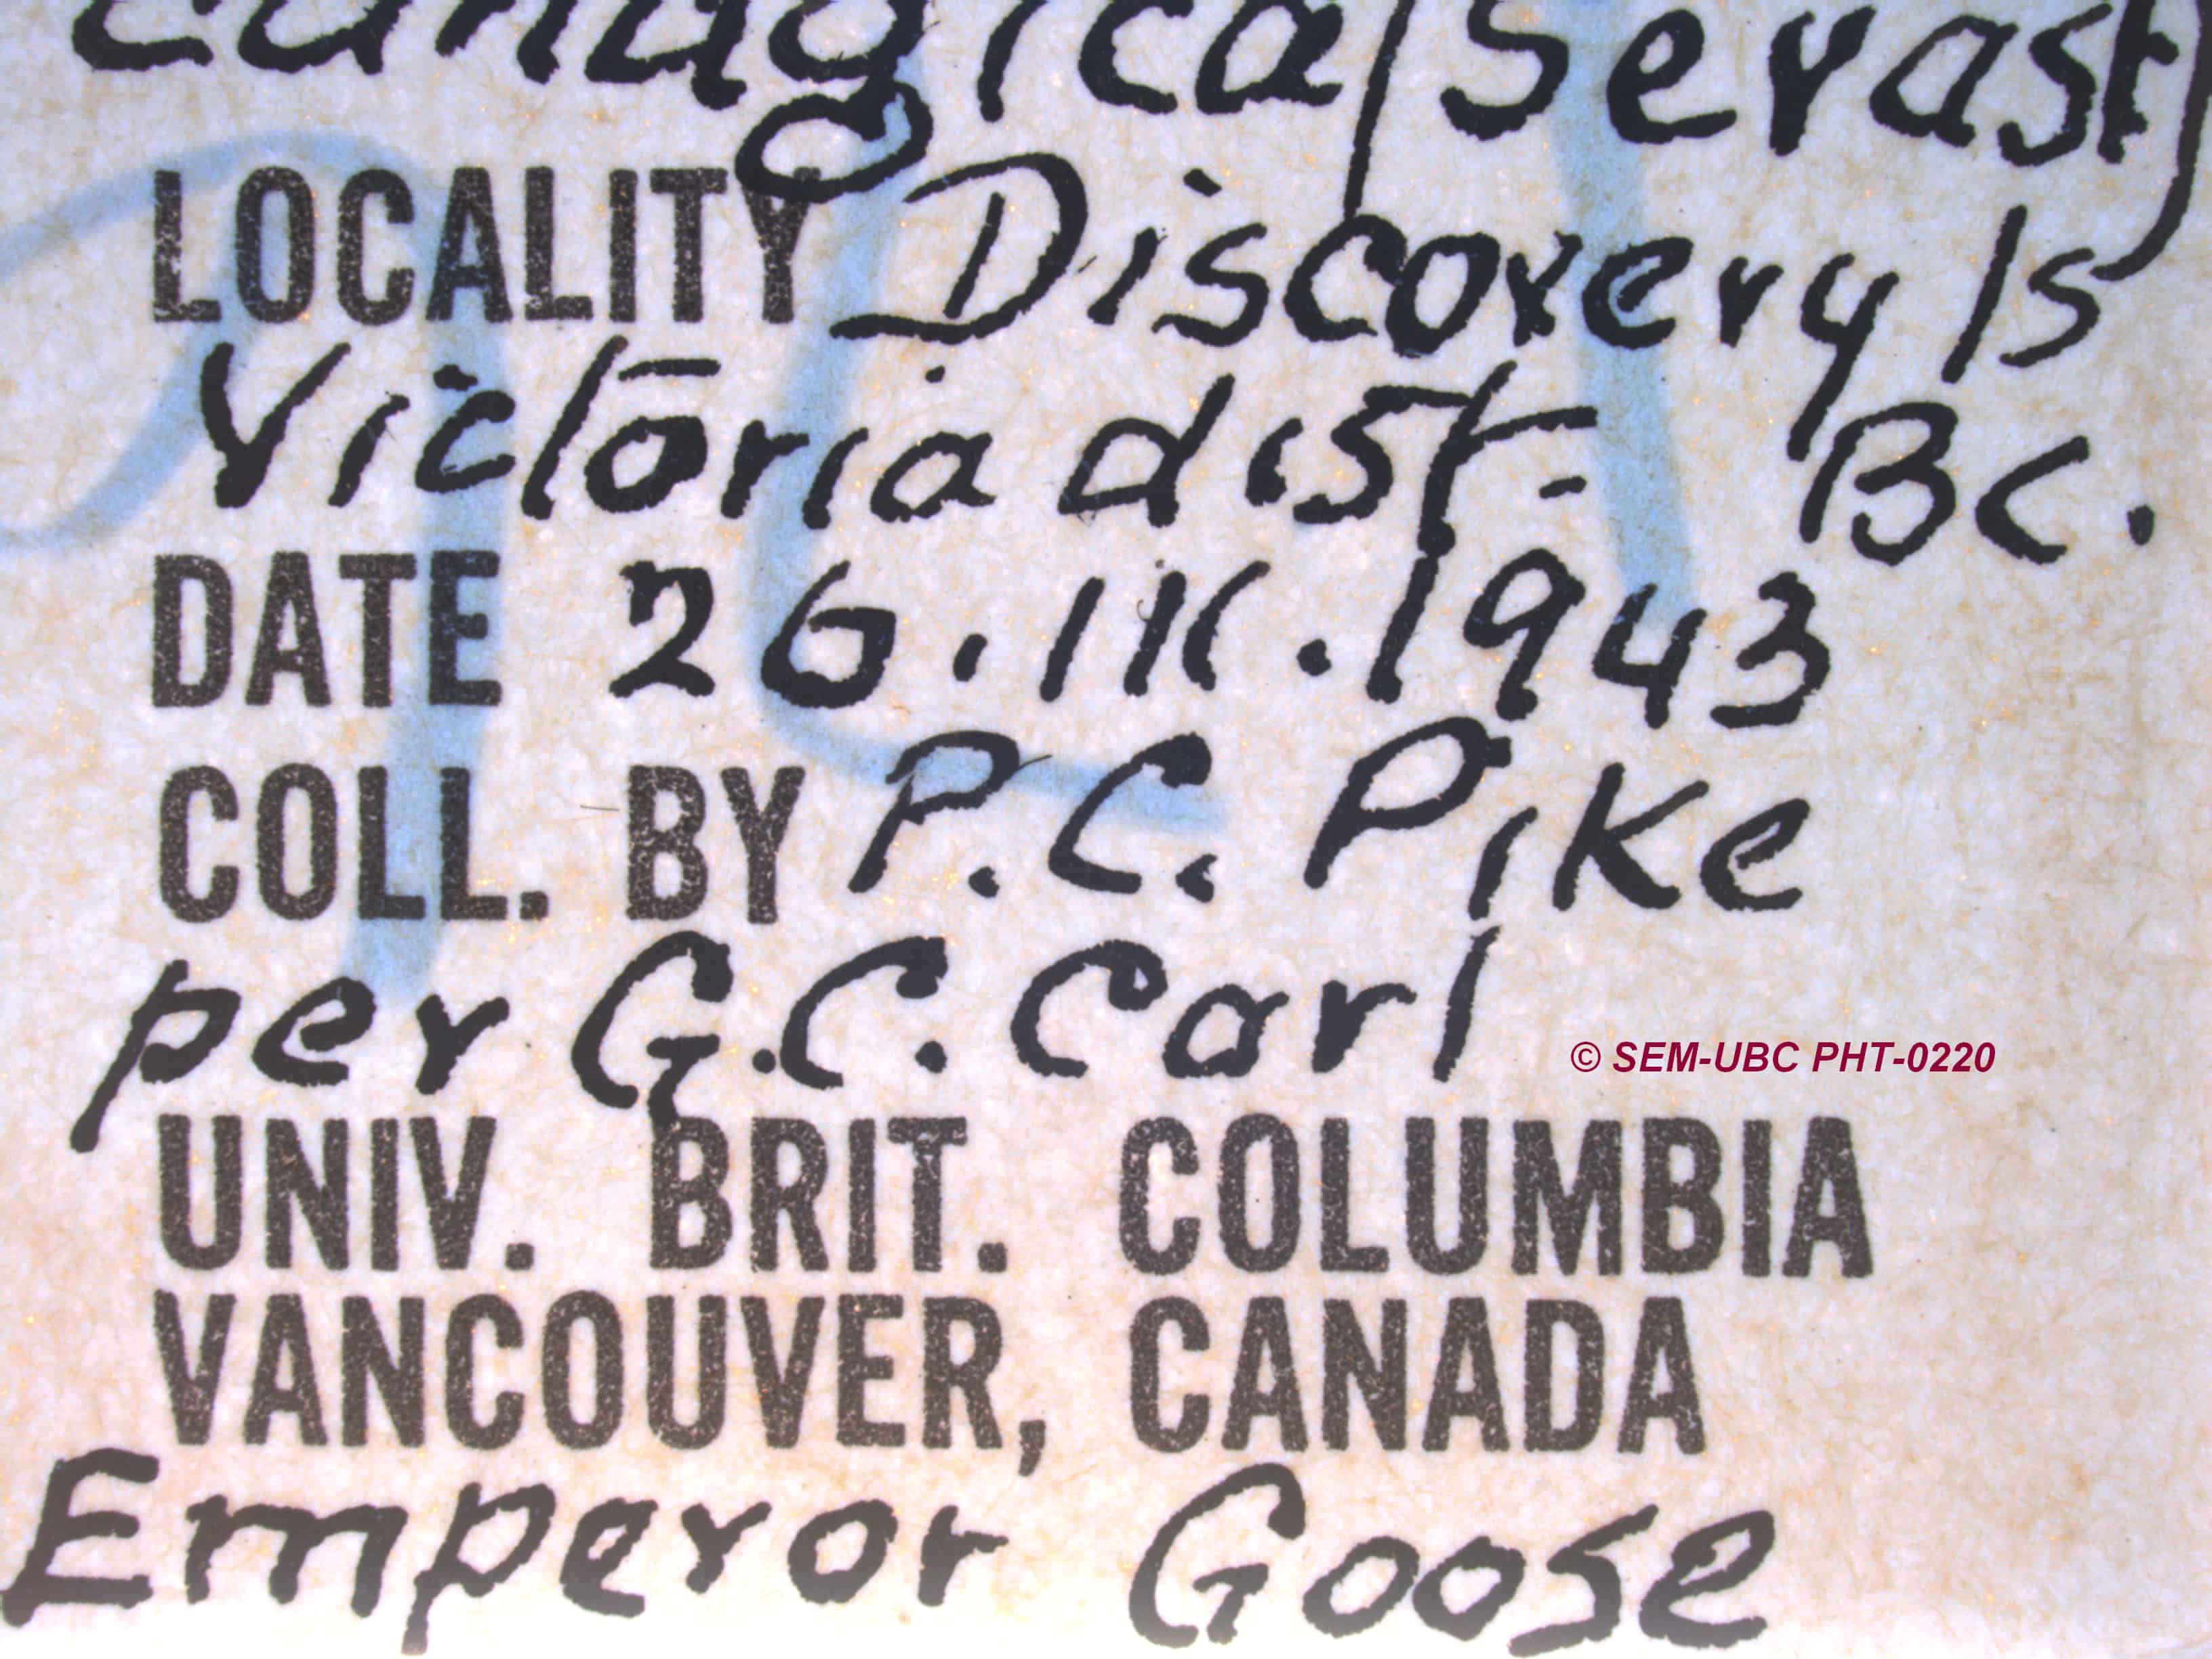 canagica (Sevast)
LOCALITY Discovery Is
Victoria dist- BC.
DATE 26.IX.1943
COLL. BY P.C. Pike
per G.C. Carl
© SEM-UBC PHT-0220
UNIV. BRIT. COLUMBIA
VANCOUVER, CANADA
Emperor Goose